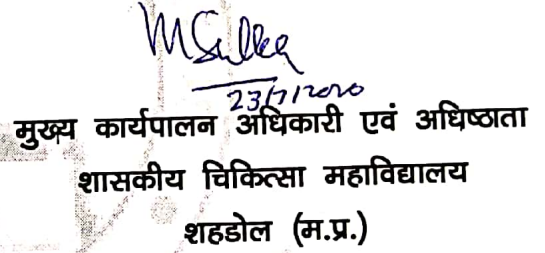 23/7/2020
मुख्य कार्यपालन अधिकारी एवं अधिष्ठाता
शासकीय चिकित्सा महाविद्यालय
शहडोल (म.प्र.)